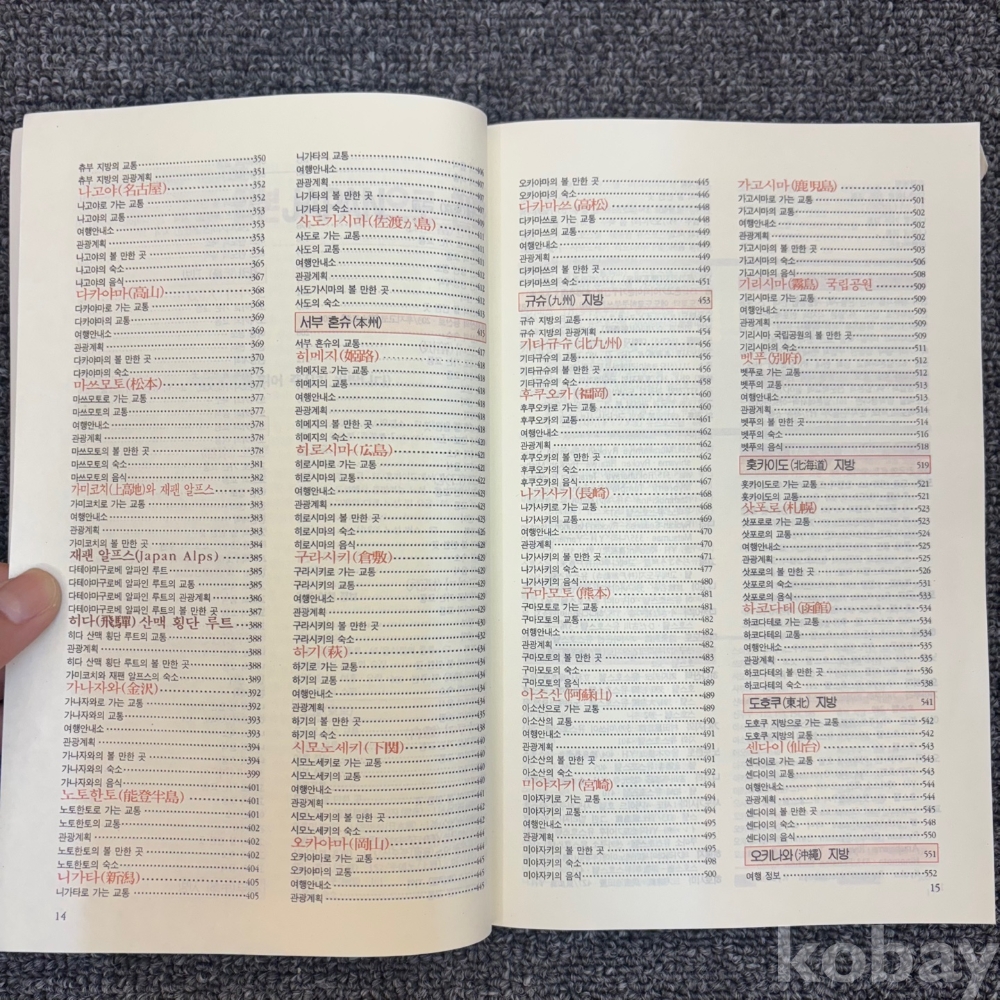 츄부 지방의 교통 350
츄부 지방의 관광계획 351
나고야(名古屋) 352
나고야로 가는 교통 352
나고야의 교통 353
여행안내소 353
관광계획 353
나고야의 볼 만한 곳 354
나고야의 숙소 365
나고야의 음식 367
다카야마(高山) 368
다카야마로 가는 교통 368
다카야마의 교통 369
여행안내소 369
관광계획 369
다카야마의 볼 만한 곳 370
다카야마의 숙소 375
마쓰모토(松本) 377
마쓰모토로 가는 교통 377
마쓰모토의 교통 377
여행안내소 378
관광계획 378
마쓰모토의 볼 만한 곳 378
마쓰모토의 숙소 381
마쓰모토의 음식 382
가미코치(上高地)와 재팬 알프스 383
가미코치로 가는 교통 383
여행안내소 383
관광계획 383
가미코치의 볼 만한 곳 384
재팬 알프스(Japan Alps) 385
다테야마구로베 알파인 루트 385
다테야마구로베 알파인 루트의 교통 385
다테야마구로베 알파인 루트의 관광계획 386
다테야마구로베 알파인 루트의 볼 만한 곳 387
히다(飛驒) 산맥 횡단 루트 388
히다 산맥 횡단 루트의 교통 388
관광계획 388
히다 산맥 횡단 루트의 볼 만한 곳 388
가미코치와 재팬 알프스의 숙소 389
가나자와(金沢) 392
가나자와로 가는 교통 392
가나자와의 교통 393
여행안내소 393
관광계획 394
가나자와의 볼 만한 곳 394
가나자와의 숙소 399
가나자와의 음식 401
노토한토(能登半島) 401
노토한토로 가는 교통 401
노토한토의 교통 402
관광계획 402
노토한토의 볼 만한 곳 402
노토한토의 숙소 404
니가타(新潟) 405
니가타로 가는 교통 405
14
니가타의 교통 406
여행안내소 406
관광계획 407
니가타의 볼 만한 곳 407
니가타의 숙소 408
사도가시마(佐渡が島) 409
사도로 가는 교통 409
사도의 교통 411
여행안내소 411
관광계획 412
사도가시마의 볼 만한 곳 411
사도의 숙소 413
서부 혼슈(本州) 415
서부 혼슈의 교통 417
히메지(姫路) 418
히메지로 가는 교통 418
히메지의 교통 418
여행안내소 418
관광계획 418
히메지의 볼 만한 곳 418
히메지의 숙소 420
히로시마(広島) 421
히로시마로 가는 교통 421
히로시마의 교통
여행안내소
관광계획 423
히로시마의 볼 만한 곳 423
히로시마의 숙소
히로시마의 음식 428
구라시키(倉敷) 429
구리시키로 가는 교통 429
구리시키의 교통 429
여행안내소 429
관광계획
구리시키의 볼 만한 곳
구리시키의 숙소
하기(萩) 434
하기로 가는 교통 434
하기의 교통 434
여행안내소 434
관광계획
하기의 볼 만한 곳
하기의 숙소
시모노세키(下関) 440
시모노세키로 가는 교통 440
시모노세키의 교통 440
여행안내소
관광계획
시모노세키의 볼 만한 곳
시모노세키의 숙소
오카야마(岡山) 444
오카야마로 가는 교통
오카야마의 교통
여행안내소
관광계획 445
오카야마의 볼 만한 곳 445
오카야마의 숙소 446
다카마쓰(高松) 448
다카마쓰로 가는 교통 448
다카마쓰의 교통 449
여행안내소 449
관광계획 449
다카마쓰의 볼 만한 곳 449
다카마쓰의 숙소 451
규슈(九州) 지방 453
규슈 지방의 교통 454
규슈 지방의 관광계획 454
기타규슈(北九州) 456
기타규슈로 가는 교통 456
기타규슈의 볼 만한 곳 456
기타규슈의 숙소 458
후쿠오카(福岡) 460
후쿠오카로 가는 교통 460
후쿠오카의 교통 461
여행안내소 462
관광계획 462
후쿠오카의 볼 만한 곳 462
후쿠오카의 숙소 466
후쿠오카의 음식 467
나가사키(長崎) 468
나가사키로 가는 교통 468
나가사키의 교통 469
여행안내소 470
관광계획 470
나가사키의 볼 만한 곳 471
나가사키의 숙소 477
나가사키의 음식 480
구마모토(熊本) 481
구마모토로 가는 교통 481
구마모토의 교통 482
여행안내소 482
관광계획 483
구마모토의 볼 만한 곳 483
구마모토의 숙소 487
구마모토의 음식 485
아소산(阿蘇山) 489
아소산으로 가는 교통 489
아소산의 교통 490
여행안내소 491
관광계획 491
아소산의 볼 만한 곳 491
아소산의 숙소 492
미야자키(宮崎) 494
미야자키로 가는 교통 494
미야자키의 교통 494
여행안내소 495
관광계획 495
미야자키의 볼 만한 곳 495
미야자키의 숙소 498
미야자키의 음식 500
가고시마(鹿児島) 501
가고시마로 가는 교통 501
가고시마의 교통 502
여행안내소 502
관광계획 502
가고시마의 볼 만한 곳 503
가고시마의 숙소 506
가고시마의 음식 508
기리시마(霧島) 국립공원 509
기리시마로 가는 교통 509
여행안내소 509
관광계획 509
기리시마 국립공원의 볼 만한 곳 509
기리시마의 숙소 511
벳푸(別府) 512
벳푸로 가는 교통 512
벳푸의 교통 513
여행안내소 513
관광계획 514
벳푸의 볼 만한 곳 514
벳푸의 숙소 516
벳푸의 음식 518
홋카이도(北海道) 지방 519
홋카이도로 가는 교통 521
홋카이도의 교통 521
삿포로(札幌) 523
삿포로로 가는 교통 523
삿포로의 교통 524
여행안내소 525
관광계획 525
삿포로의 볼 만한 곳 526
삿포로의 숙소 531
삿포로의 음식 533
하코다테(函館) 534
하코다테로 가는 교통 534
하코다테의 교통 534
여행안내소 535
관광계획 535
하코다테의 볼 만한 곳 536
하코다테의 숙소 538
도호쿠(東北) 지방 541
도호쿠 지방으로 가는 교통 542
도호쿠 지방의 교통 542
센다이(仙台) 543
센다이로 가는 교통 543
센다이의 교통 543
여행안내소 544
관광계획 544
센다이의 볼 만한 곳 545
센다이의 숙소 548
센다이의 음식 550
오키나와(沖縄) 지방 551
여행 정보 552
15
kobay